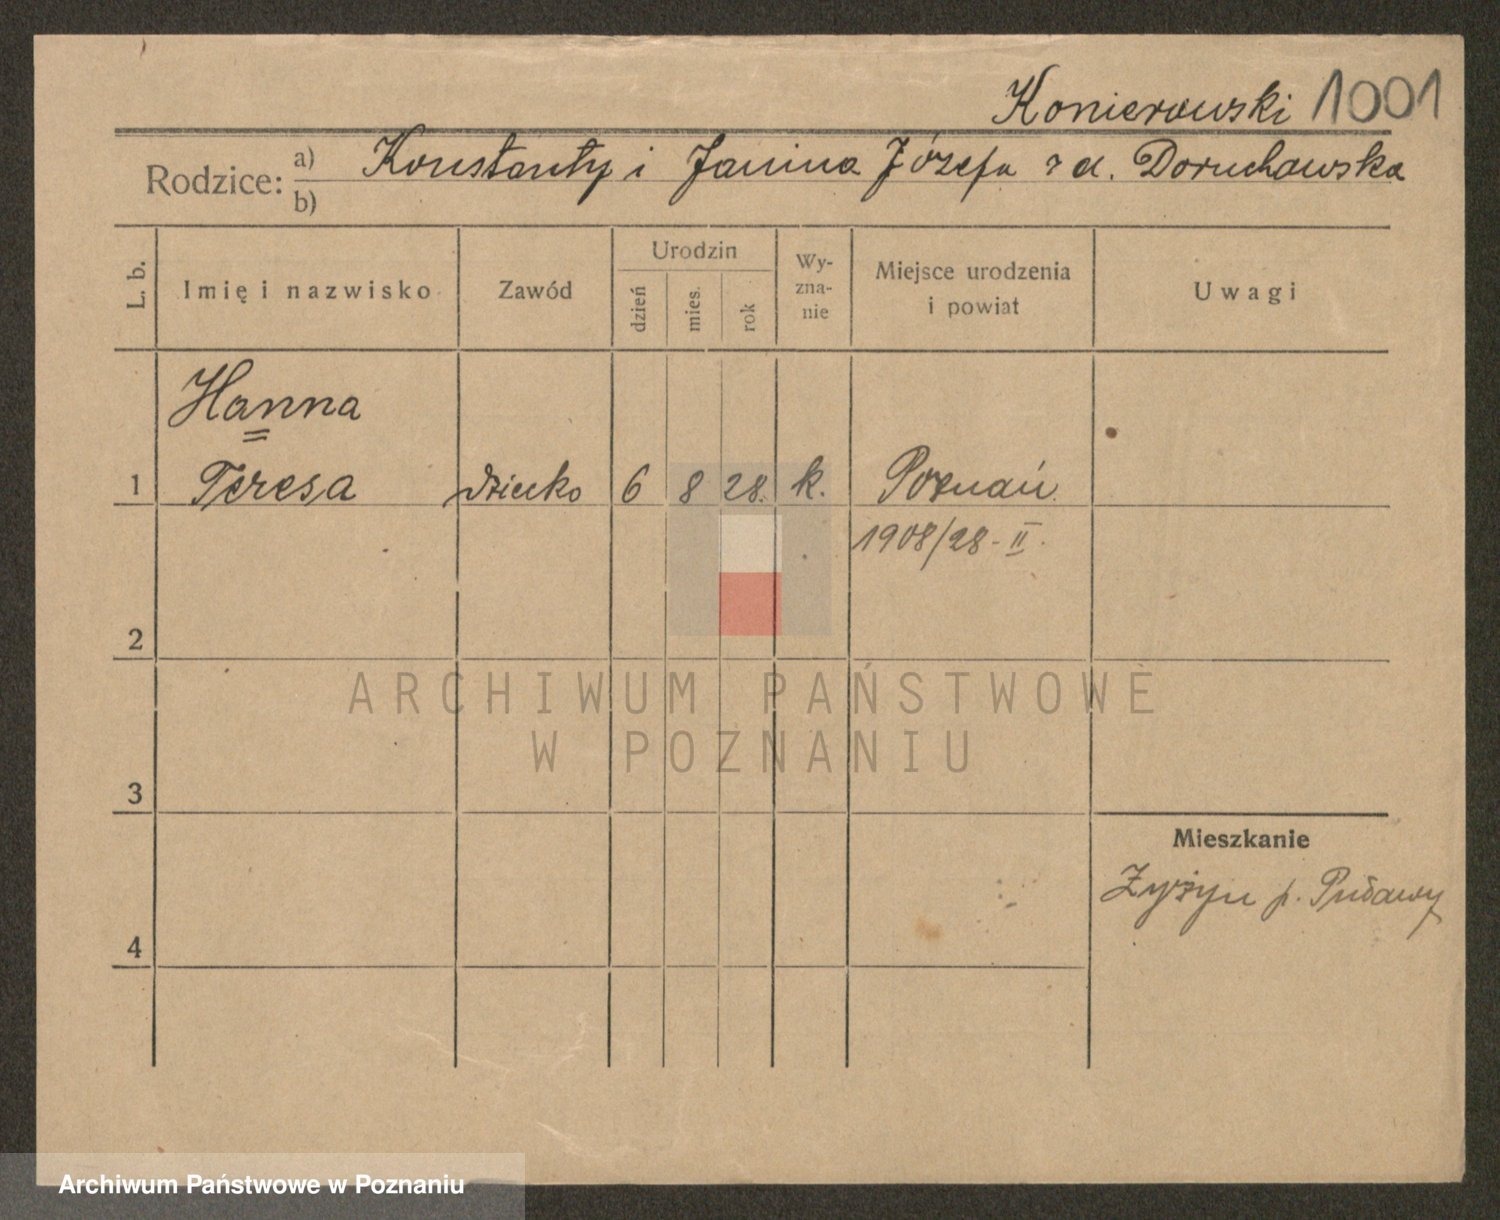 Konierowski 1001
Rodzice: a) Konstanty i Janina Józefa z d. Doruchowska
b)
L. b.
Imię i nazwisko
Zawód
Urodzin
dzień
mies.
rok
Wy-
zna-
nie
Miejsce urodzenia
i powiat
Uwagi
Hanna
1 Teresa dziecko 6 8 28. k. Poznań
1908/28 - II.
2
ARCHIWUM PAŃSTWOWE
W POZNANIU
3
Mieszkanie
Żyrzyn p. Puławy
4
Archiwum Państwowe w Poznaniu